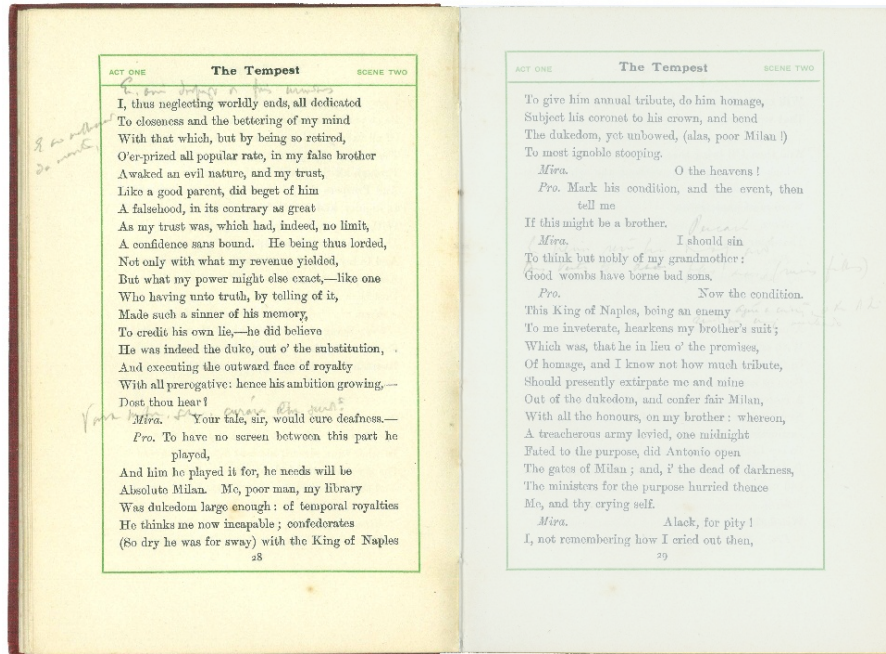 ACT ONE The Tempest SCENE TWO
I, thus neglecting worldly ends, all dedicated
To closeness and the bettering of my mind
With that which, but by being so retired,
O'er-prized all popular rate, in my false brother
Awaked an evil nature, and my trust,
Like a good parent, did beget of him
A falsehood, in its contrary as great
As my trust was, which had, indeed, no limit,
A confidence sans bound. He being thus lorded,
Not only with what my revenue yielded,
But what my power might else exact,—like one
Who having unto truth, by telling of it,
Made such a sinner of his memory,
To credit his own lie,—he did believe
He was indeed the duke, out o' the substitution,
And executing the outward face of royalty
With all prerogative: hence his ambition growing,—
Dost thou hear?
Mira. Your tale, sir, would cure deafness.—
Pro. To have no screen between this part he
played,
And him he played it for, he needs will be
Absolute Milan. Me, poor man, my library
Was dukedom large enough: of temporal royalties
He thinks me now incapable; confederates
(So dry he was for sway) with the King of Naples
28
ACT ONE The Tempest SCENE TWO
To give him annual tribute, do him homage,
Subject his coronet to his crown, and bend
The dukedom, yet unbowed, (alas, poor Milan!)
To most ignoble stooping.
Mira. O the heavens!
Pro. Mark his condition, and the event, then
tell me
If this might be a brother.
Mira. I should sin
To think but nobly of my grandmother:
Good wombs have borne bad sons.
Pro. Now the condition.
This King of Naples, being an enemy
To me inveterate, hearkens my brother's suit;
Which was, that he in lieu o' the premises,
Of homage, and I know not how much tribute,
Should presently extirpate me and mine
Out of the dukedom, and confer fair Milan,
With all the honours, on my brother: whereon,
A treacherous army levied, one midnight
Fated to the purpose, did Antonio open
The gates of Milan; and, i' the dead of darkness,
The ministers for the purpose hurried thence
Me, and thy crying self.
Mira. Alack, for pity!
I, not remembering how I cried out then,
29